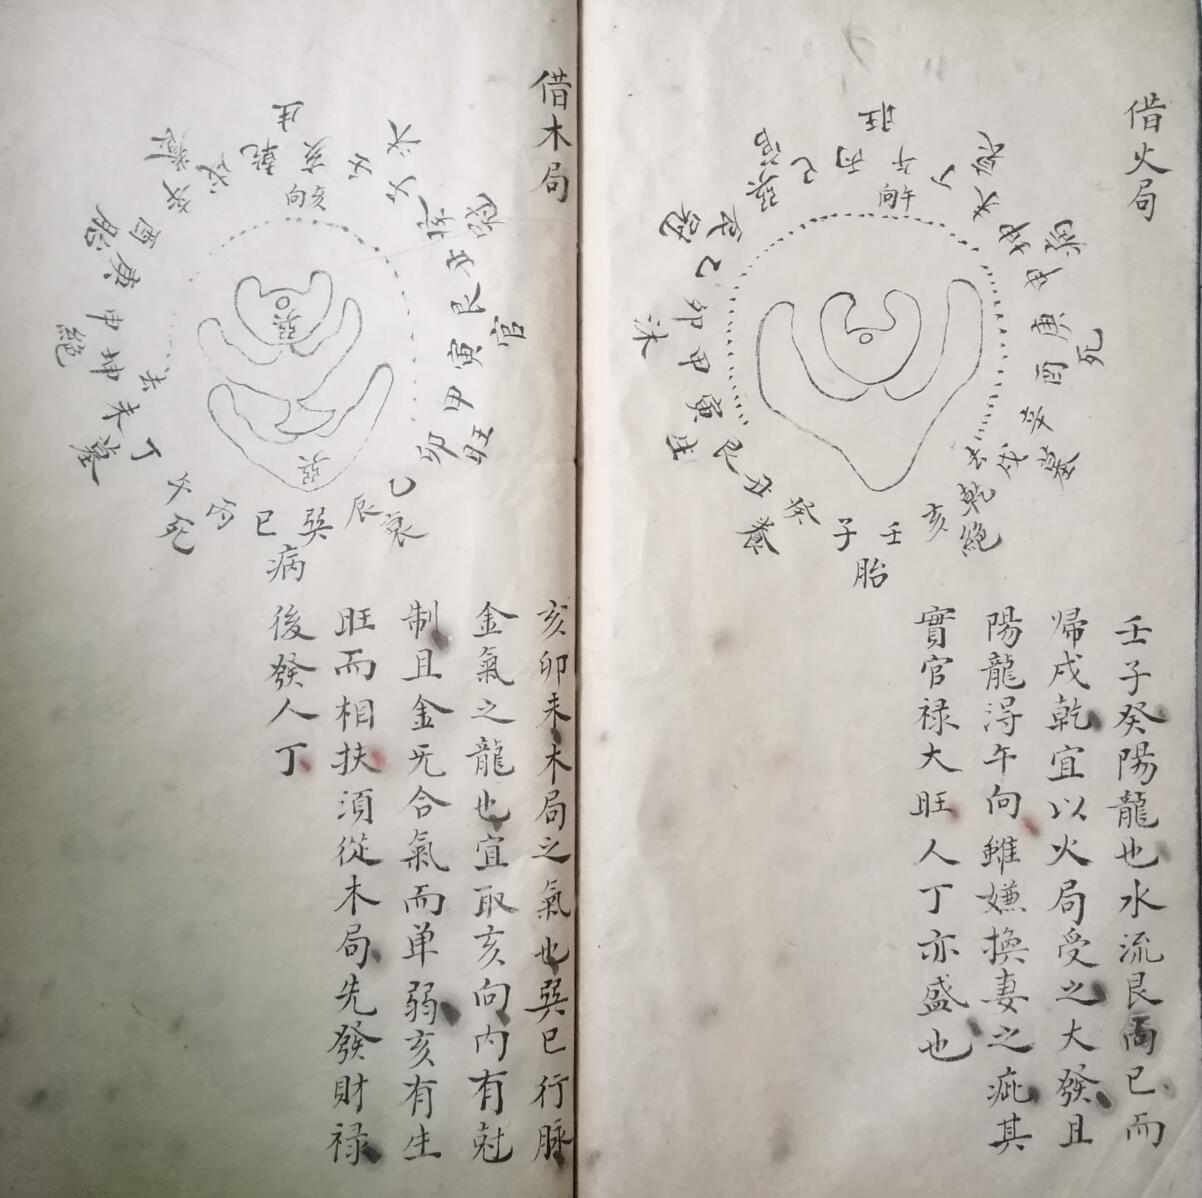 借火局
旺
丁
午
丙
巳
向午
冠
乙
卯
甲
寅
艮
丑
癸
子
壬
亥
乾
沐
生
養
胎
絕
墓
死
病
庚
酉
壬子癸陽龍也水流艮丙巳而
歸戌乾宜以火局受之大發且
陽龍淂午向雖嫌換妻之疵其
實官禄大旺人丁亦盛也
借木局
生
沐
亥
壬
乾
向亥
艮
寅
甲
卯
官
旺
乙
衰
辰
巽
巳
丙
午
丁
未
坤
申
庚
酉
病
死
墓
絕
胎
去
巽
巽
亥卯未木局之氣也巽巳行脉
金氣之龍也宜取亥向内有尅
制且金旡合氣而单弱亥有生
旺而相扶須從木局先發財禄
後發人丁